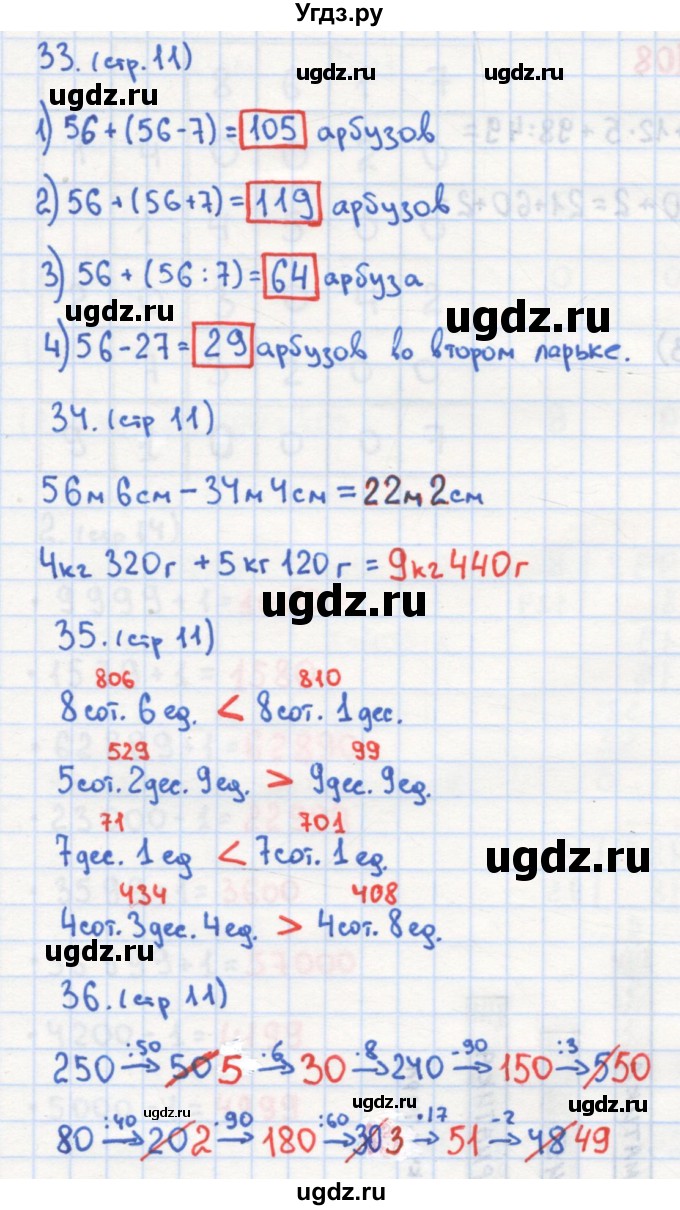 Угдз.ру
33. (стр. 11)
ugdz.ru
ugdz.ru
ugdz.ru
1) 56 + (56 - 7) = 105 арбузов
2) 56 + (56 + 7) = 119 арбузов
3) 56 + (56 : 7) = 64 арбуза
ugdz.ru
ugdz.ru
4) 56 - 27 = 29 арбузов во втором ларьке.
34. (стр 11)
56м 6см - 34м 4см = 22м 2см
4кг 320г + 5кг 120г = 9кг 440г
ugdz.ru
35. (стр 11)
806 810
8сот. 6 ед. < 8сот. 1дес.
529 99
5сот. 2дес. 9ед. > 9дес. 9ед.
71 701
7дес. 1ед < 7сот. 1ед.
ugdz.ru
434 408
4сот. 3дес. 4ед. > 4сот. 8ед.
ugdz.ru
36. (стр 11)
:50 ·6 ·8 -90 :3
250 → 50 5 → 30 → 240 → 150 → 550
ugdz.ru ugdz.ru ugdz.ru
:40 ·90 :60 ·17 -2
80 → 20 2 → 180 → 30 3 → 51 → 48 49
ugdz.ru